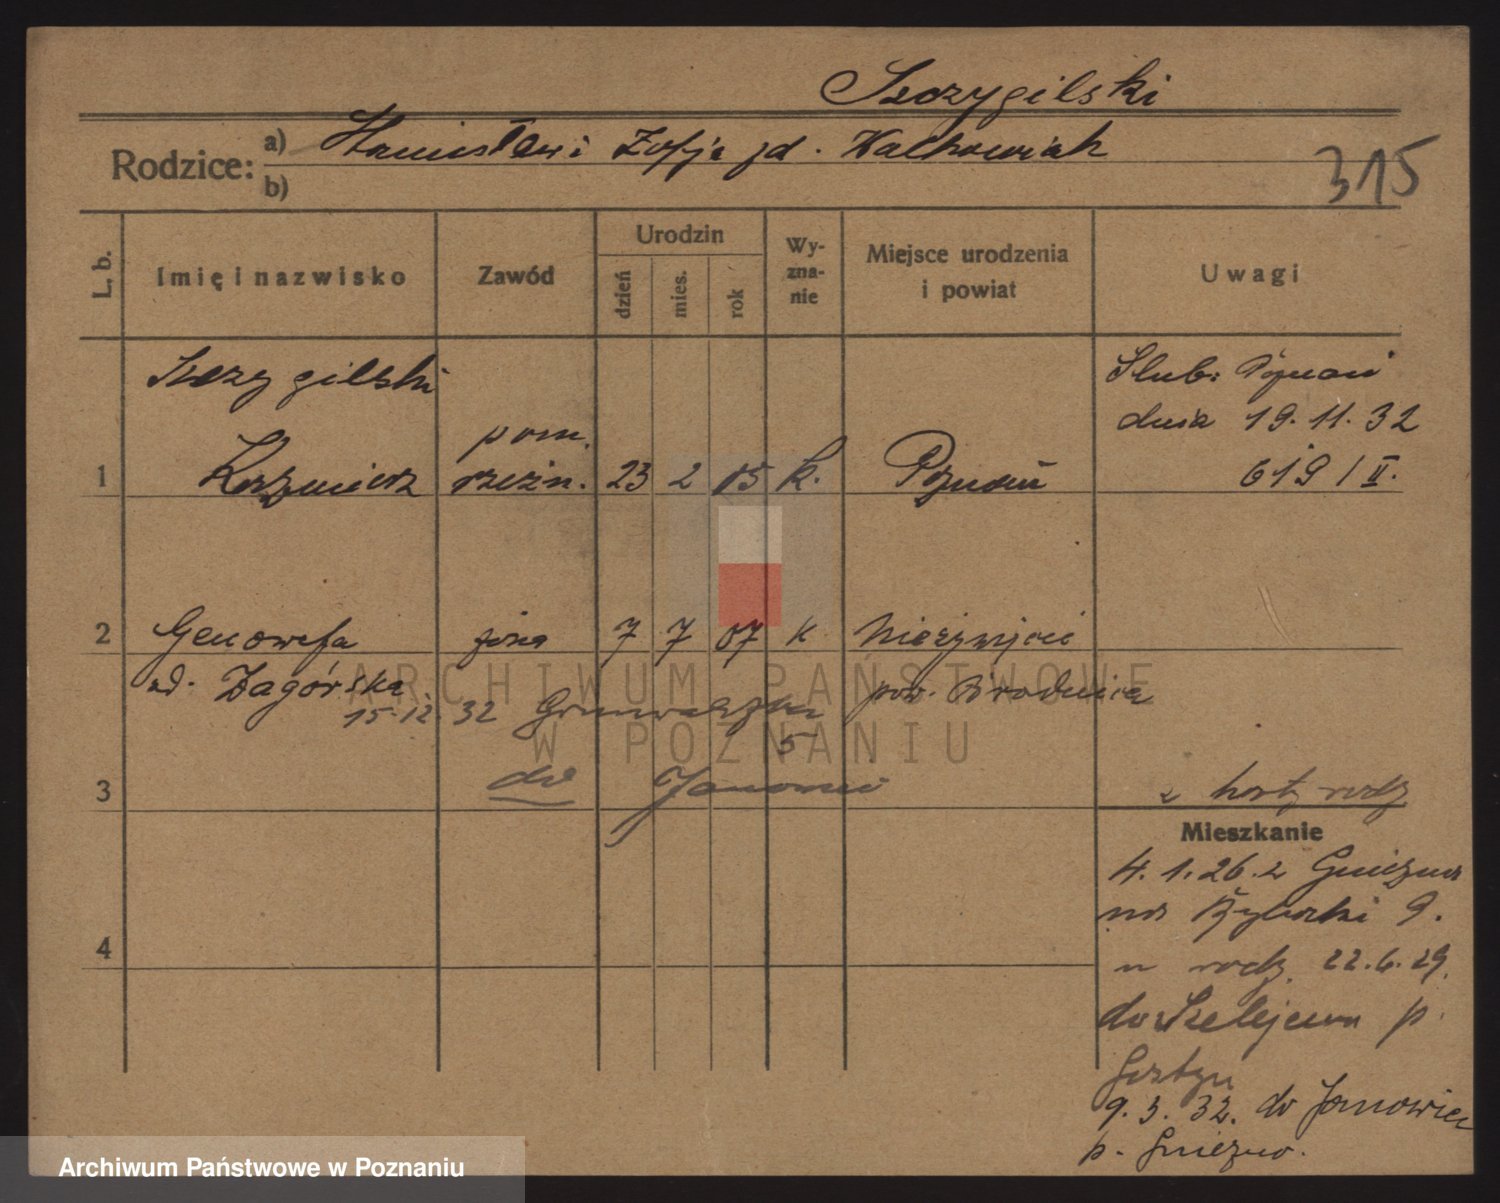 Szczygilski
Rodzice: a) Stanisław i Zofja zd. Walkowiak
b)
315
L. b.
Imię i nazwisko
Zawód
Urodzin
dzień
mies.
rok
Wy-
zna-
nie
Miejsce urodzenia
i powiat
Uwagi
Szczygilski
Ślub: Poznań
dnia 19.11.32
619/II.
pom.
1 Kazimierz rzeźn. 23 2 15 k. Poznań
2 Genowefa żona 7 7 07 k Nieżywięć
zd. Zagórska pow. Brodnica
15.12.32 Grunwaldzka
5
do Janowiec
3
z kart rodz
Mieszkanie
4.1.26 z Gniezna
na Rybaki 9.
u rodz. 22.6.29.
4
do Szelejewa p.
Gostyń
9.3.32. do Janowiec
p. Gniezno.
ARCHIWUM PAŃSTWOWE
W POZNANIU
Archiwum Państwowe w Poznaniu